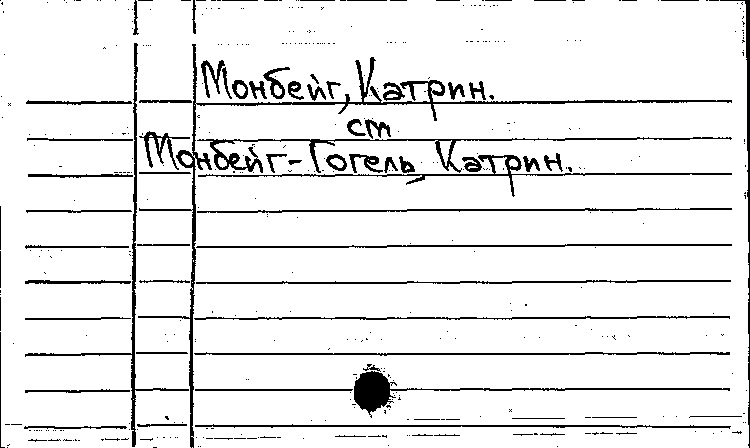 Монбейг, Катрин.
см
Монбейг-Гогель, Катрин.